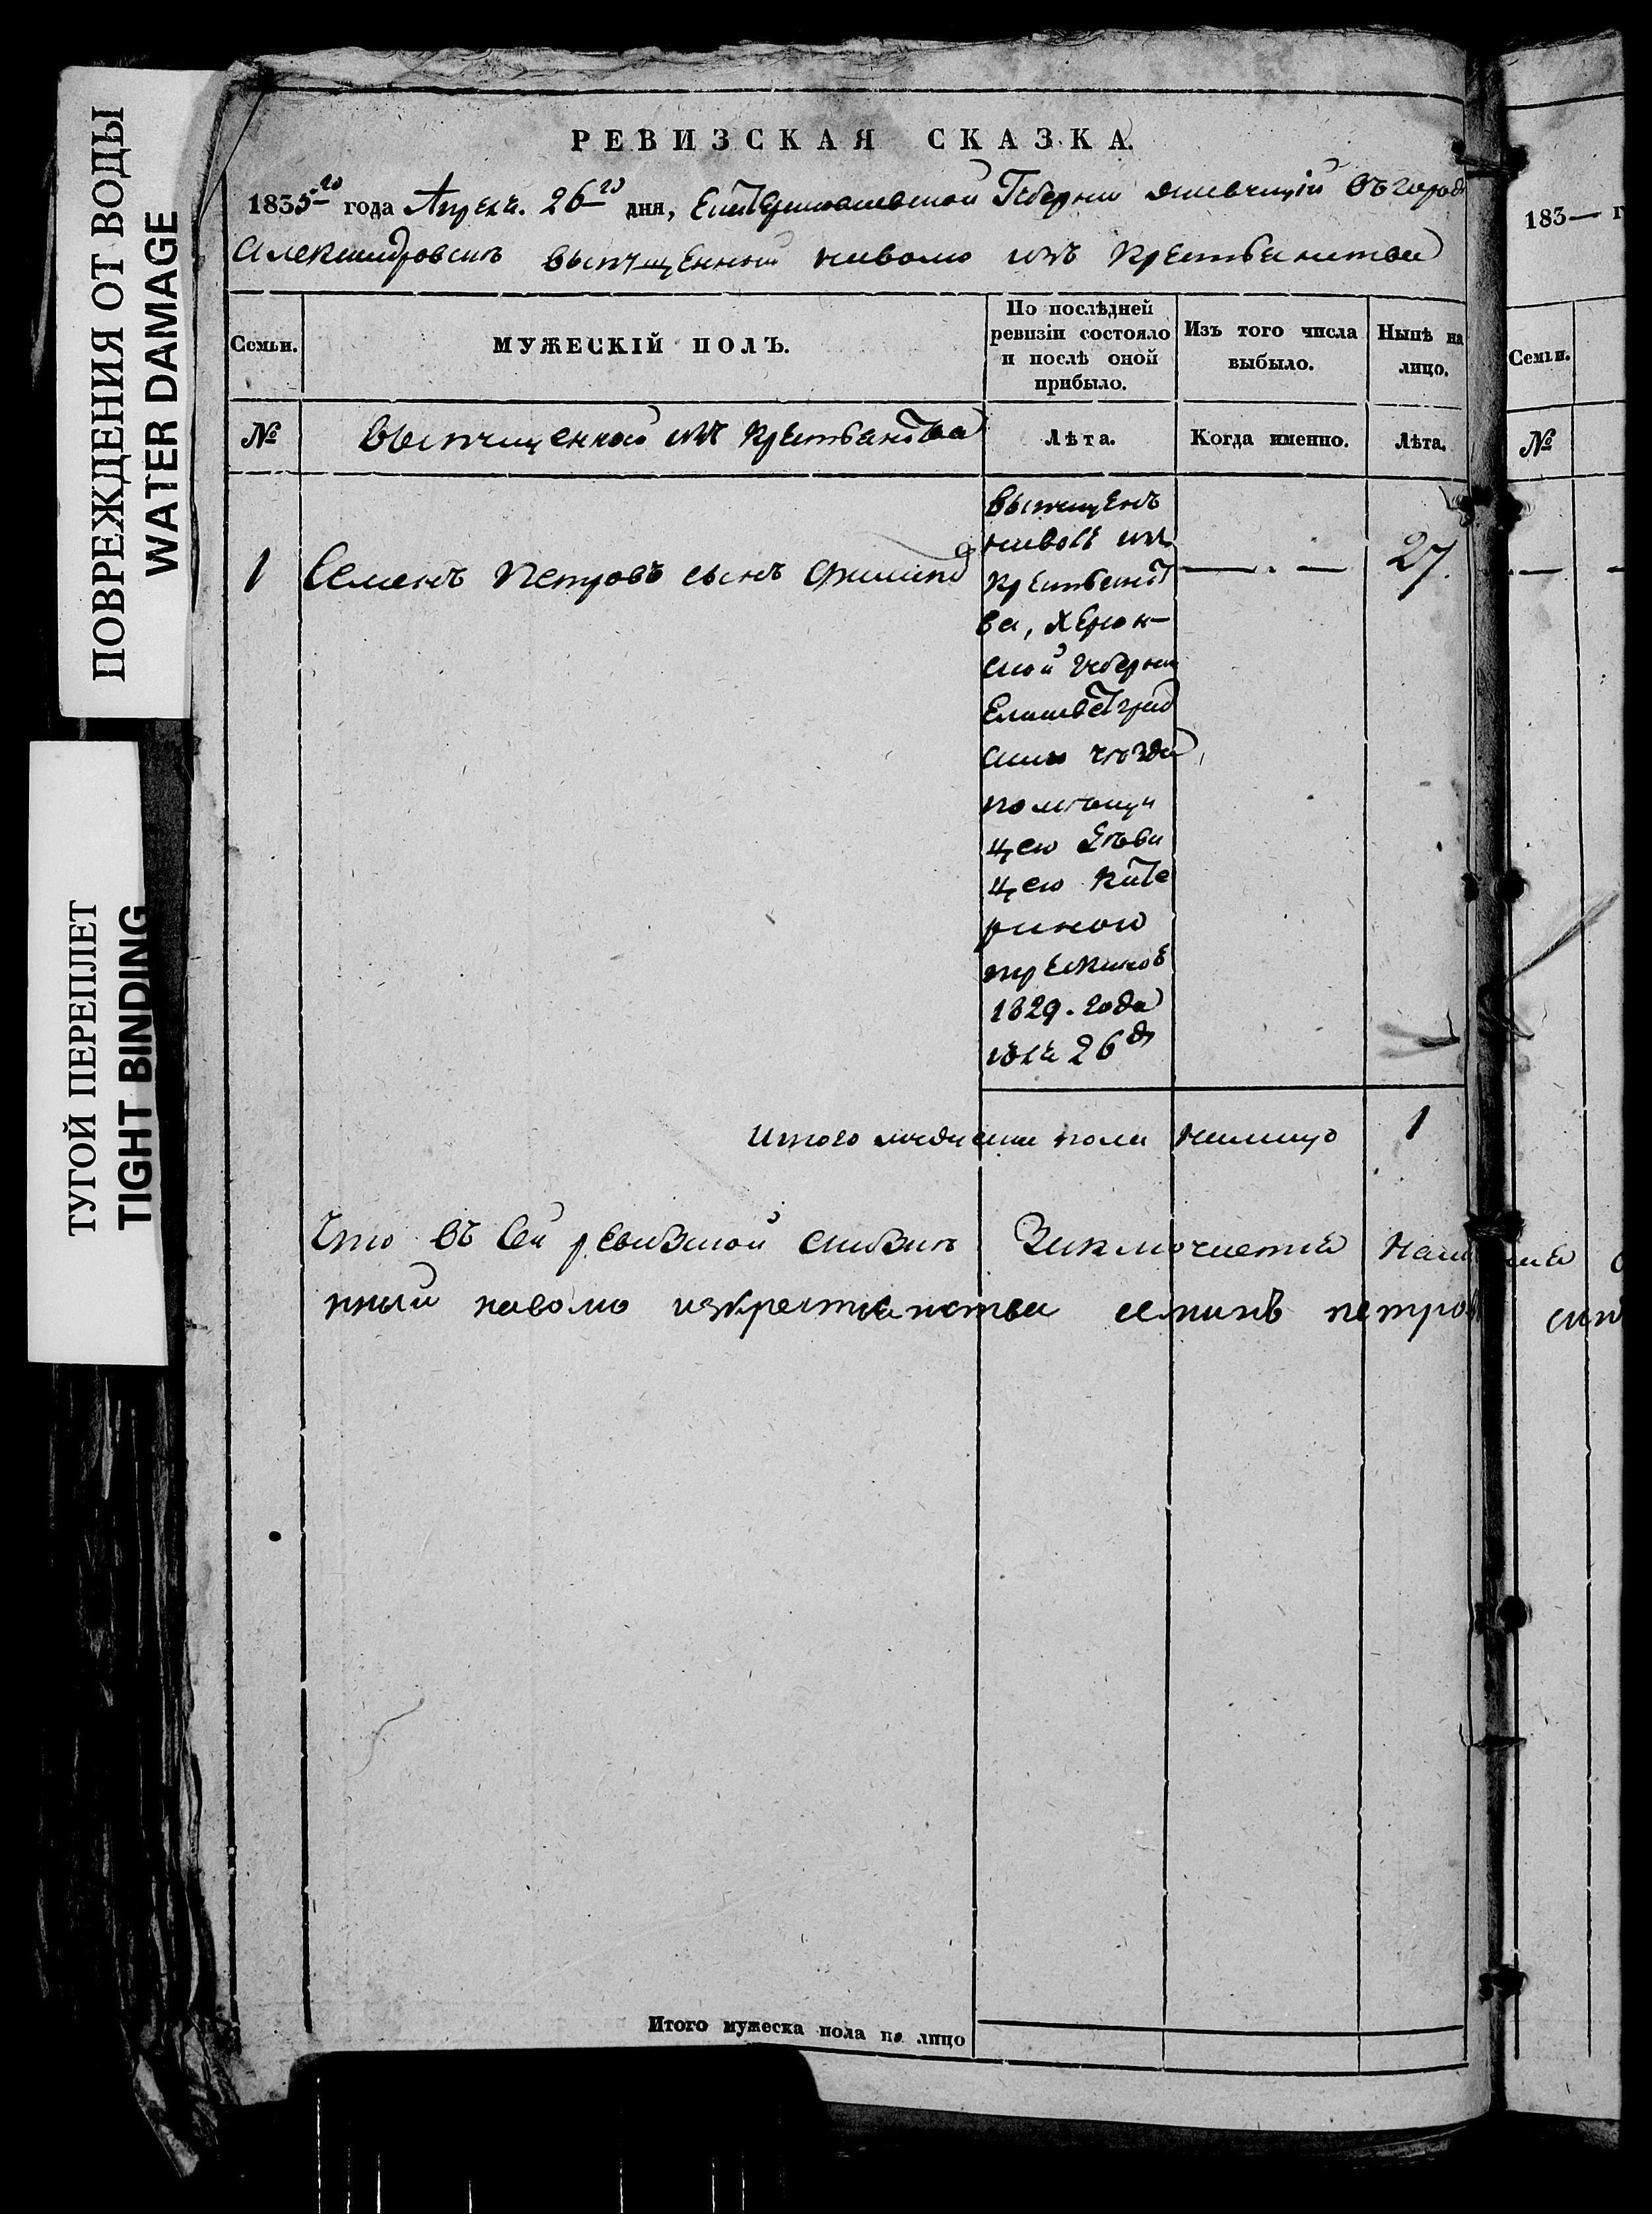 ПОВРЕЖДЕНИЯ ОТ ВОДЫ
WATER DAMAGE
ТУГОЙ ПЕРЕПЛЕТ
TIGHT BINDING
РЕВИЗСКАЯ СКАЗКА.
1835го года Апреля 26го дня, Екатеринославской Губернии живущій въ городѣ
Александровскѣ выпущенный наволю изъ крестьянства
Семьи.
МУЖЕСКІЙ ПОЛЪ.
По послѣдней
ревизіи состояло
и послѣ оной
прибыло.
Изъ того числа
выбыло.
Нынѣ на
лицо.
№
выпущенной изъ крестьянства
Лѣта.
Когда именно.
Лѣта.
1 Семенъ Петровъ сынъ — . — 27.
выпущенъ
наволю изъ
крестьянст
ва, Херсон-
ской губерніи
Елисаветград
скаго уезда
помѣщи
цею Дѣви
цею Кате
риною
1829. года
26
Итого мужеска пола налицо 1
Что въ сей ревизской сказкѣ Заключается
нный наволю изкрестьянства семинъ петровъ
Итого мужеска пола на лицо
183— г
Семьи.
№